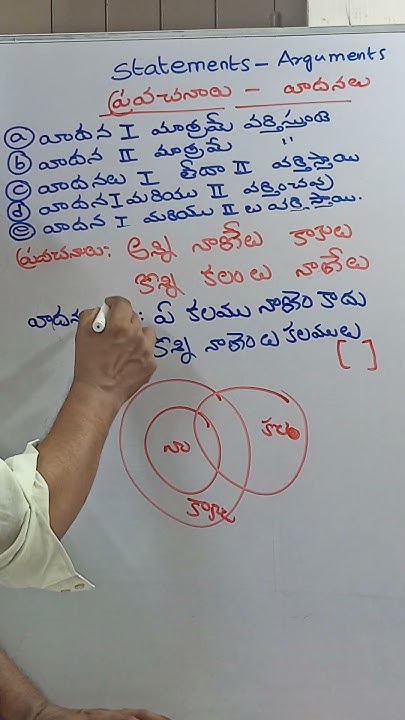 Statements - Arguments
ప్రవచనాలు - వాదనలు
ⓐ వాదన I మాత్రమే వర్తిస్తుంది
ⓑ వాదన II మాత్రమే "
ⓒ వాదనలు I లేదా II వర్తిస్తాయి
ⓓ వాదన I మరియు II వర్తించవు
ⓔ వాదన I మరియు II లు వర్తిస్తాయి.
ప్రవచనాలు: అన్ని నాణేలు కాకులు
కొన్ని కలంలు నాణేలు
వాదన : ఏ కలము నాణెం కాదు
కొన్ని నాణెంలు కలములు
[ ]
నా
కల